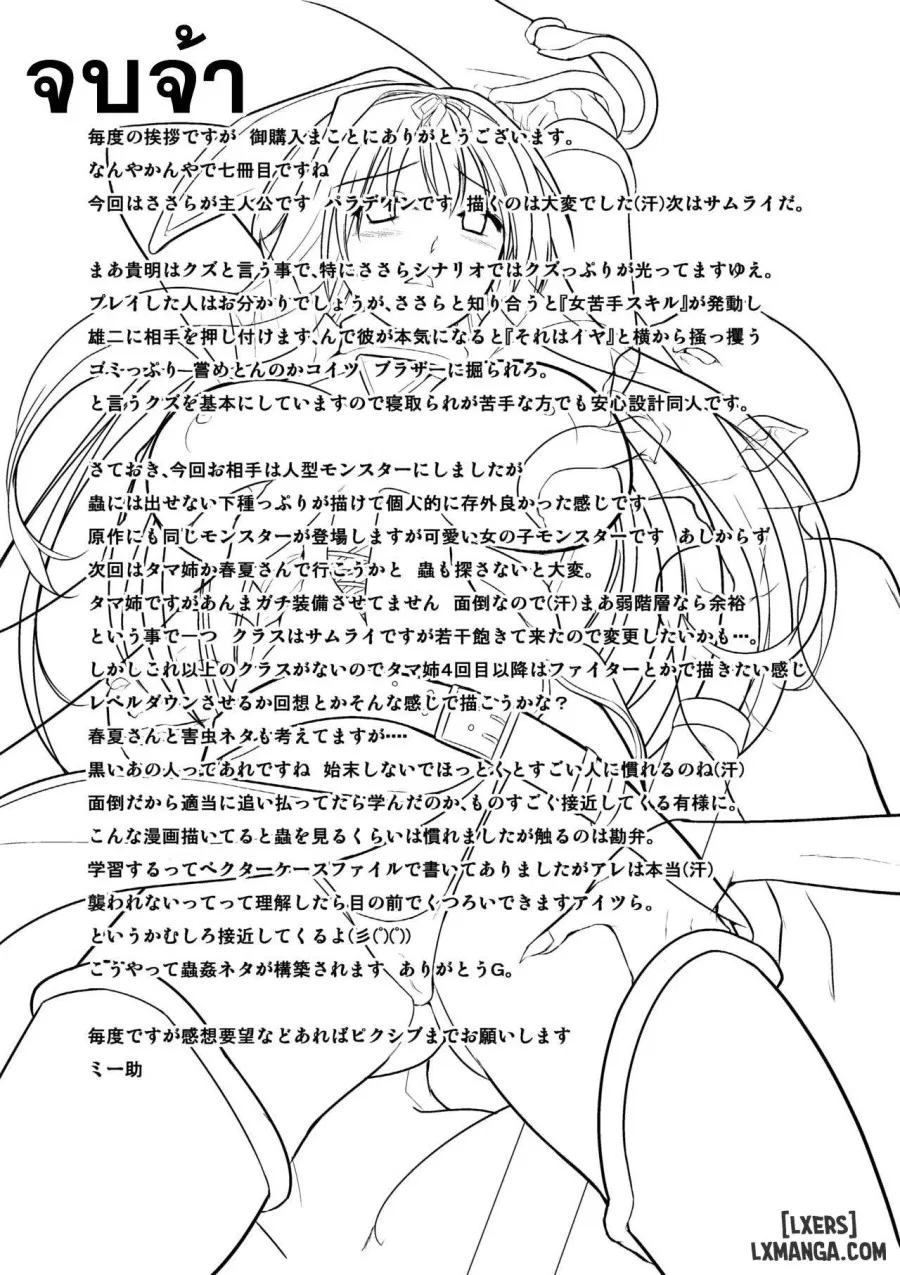 จบจ้า
毎度の挨拶ですが 御購入まことにありがとうございます。
なんやかんやで七冊目ですね
今回はささらが主人公です パラディンです 描くのは大変でした(汗)次はサムライだ。
まあ貴明はクズと言う事で、特にささらシナリオではクズっぷりが光ってますゆえ。
プレイした人はお分かりでしょうが、ささらと知り合うと『女苦手スキル』が発動し
雄二に相手を押し付けます、んで彼が本気になると『それはイヤ』と横から掻っ攫う
ゴミっぷり…嘗めとんのかコイツ ブラザーに掘られろ。
と言うクズを基本にしていますので寝取られが苦手な方でも安心設計同人です。
さておき、今回お相手は人型モンスターにしましたが
蟲には出せない下種っぷりが描けて個人的に存外良かった感じです
原作にも同じモンスターが登場しますが可愛い女の子モンスターです あしからず
次回はタマ姉か春夏さんで行こうかと 蟲も探さないと大変。
タマ姉ですがあんまガチ装備させてません 面倒なので(汗)まあ弱階層なら余裕
という事で一つ クラスはサムライですが若干飽きて来たので変更したいかも…。
しかしこれ以上のクラスがないのでタマ姉4回目以降はファイターとかで描きたい感じ
レベルダウンさせるか回想とかそんな感じで描こうかな？
春夏さんと害虫ネタも考えてますが‥‥
黒いあの人ってあれですね 始末しないでほっとくとすごい人に慣れるのね(汗)
面倒だから適当に追い払ってたら学んだのか、ものすごく接近してくる有様に。
こんな漫画描いてると蟲を見るくらいは慣れましたが触るのは勘弁。
学習するってベクターケースファイルで書いてありましたがアレは本当(汗)
襲われないってって理解したら目の前でくつろいできますアイツら。
というかむしろ接近してくるよ(彡(ﾟ)(ﾟ))
こうやって蟲姦ネタが構築されます ありがとうG。
毎度ですが感想要望などあればピクシブまでお願いします
ミー助
[LXERS]
LXMANGA.COM